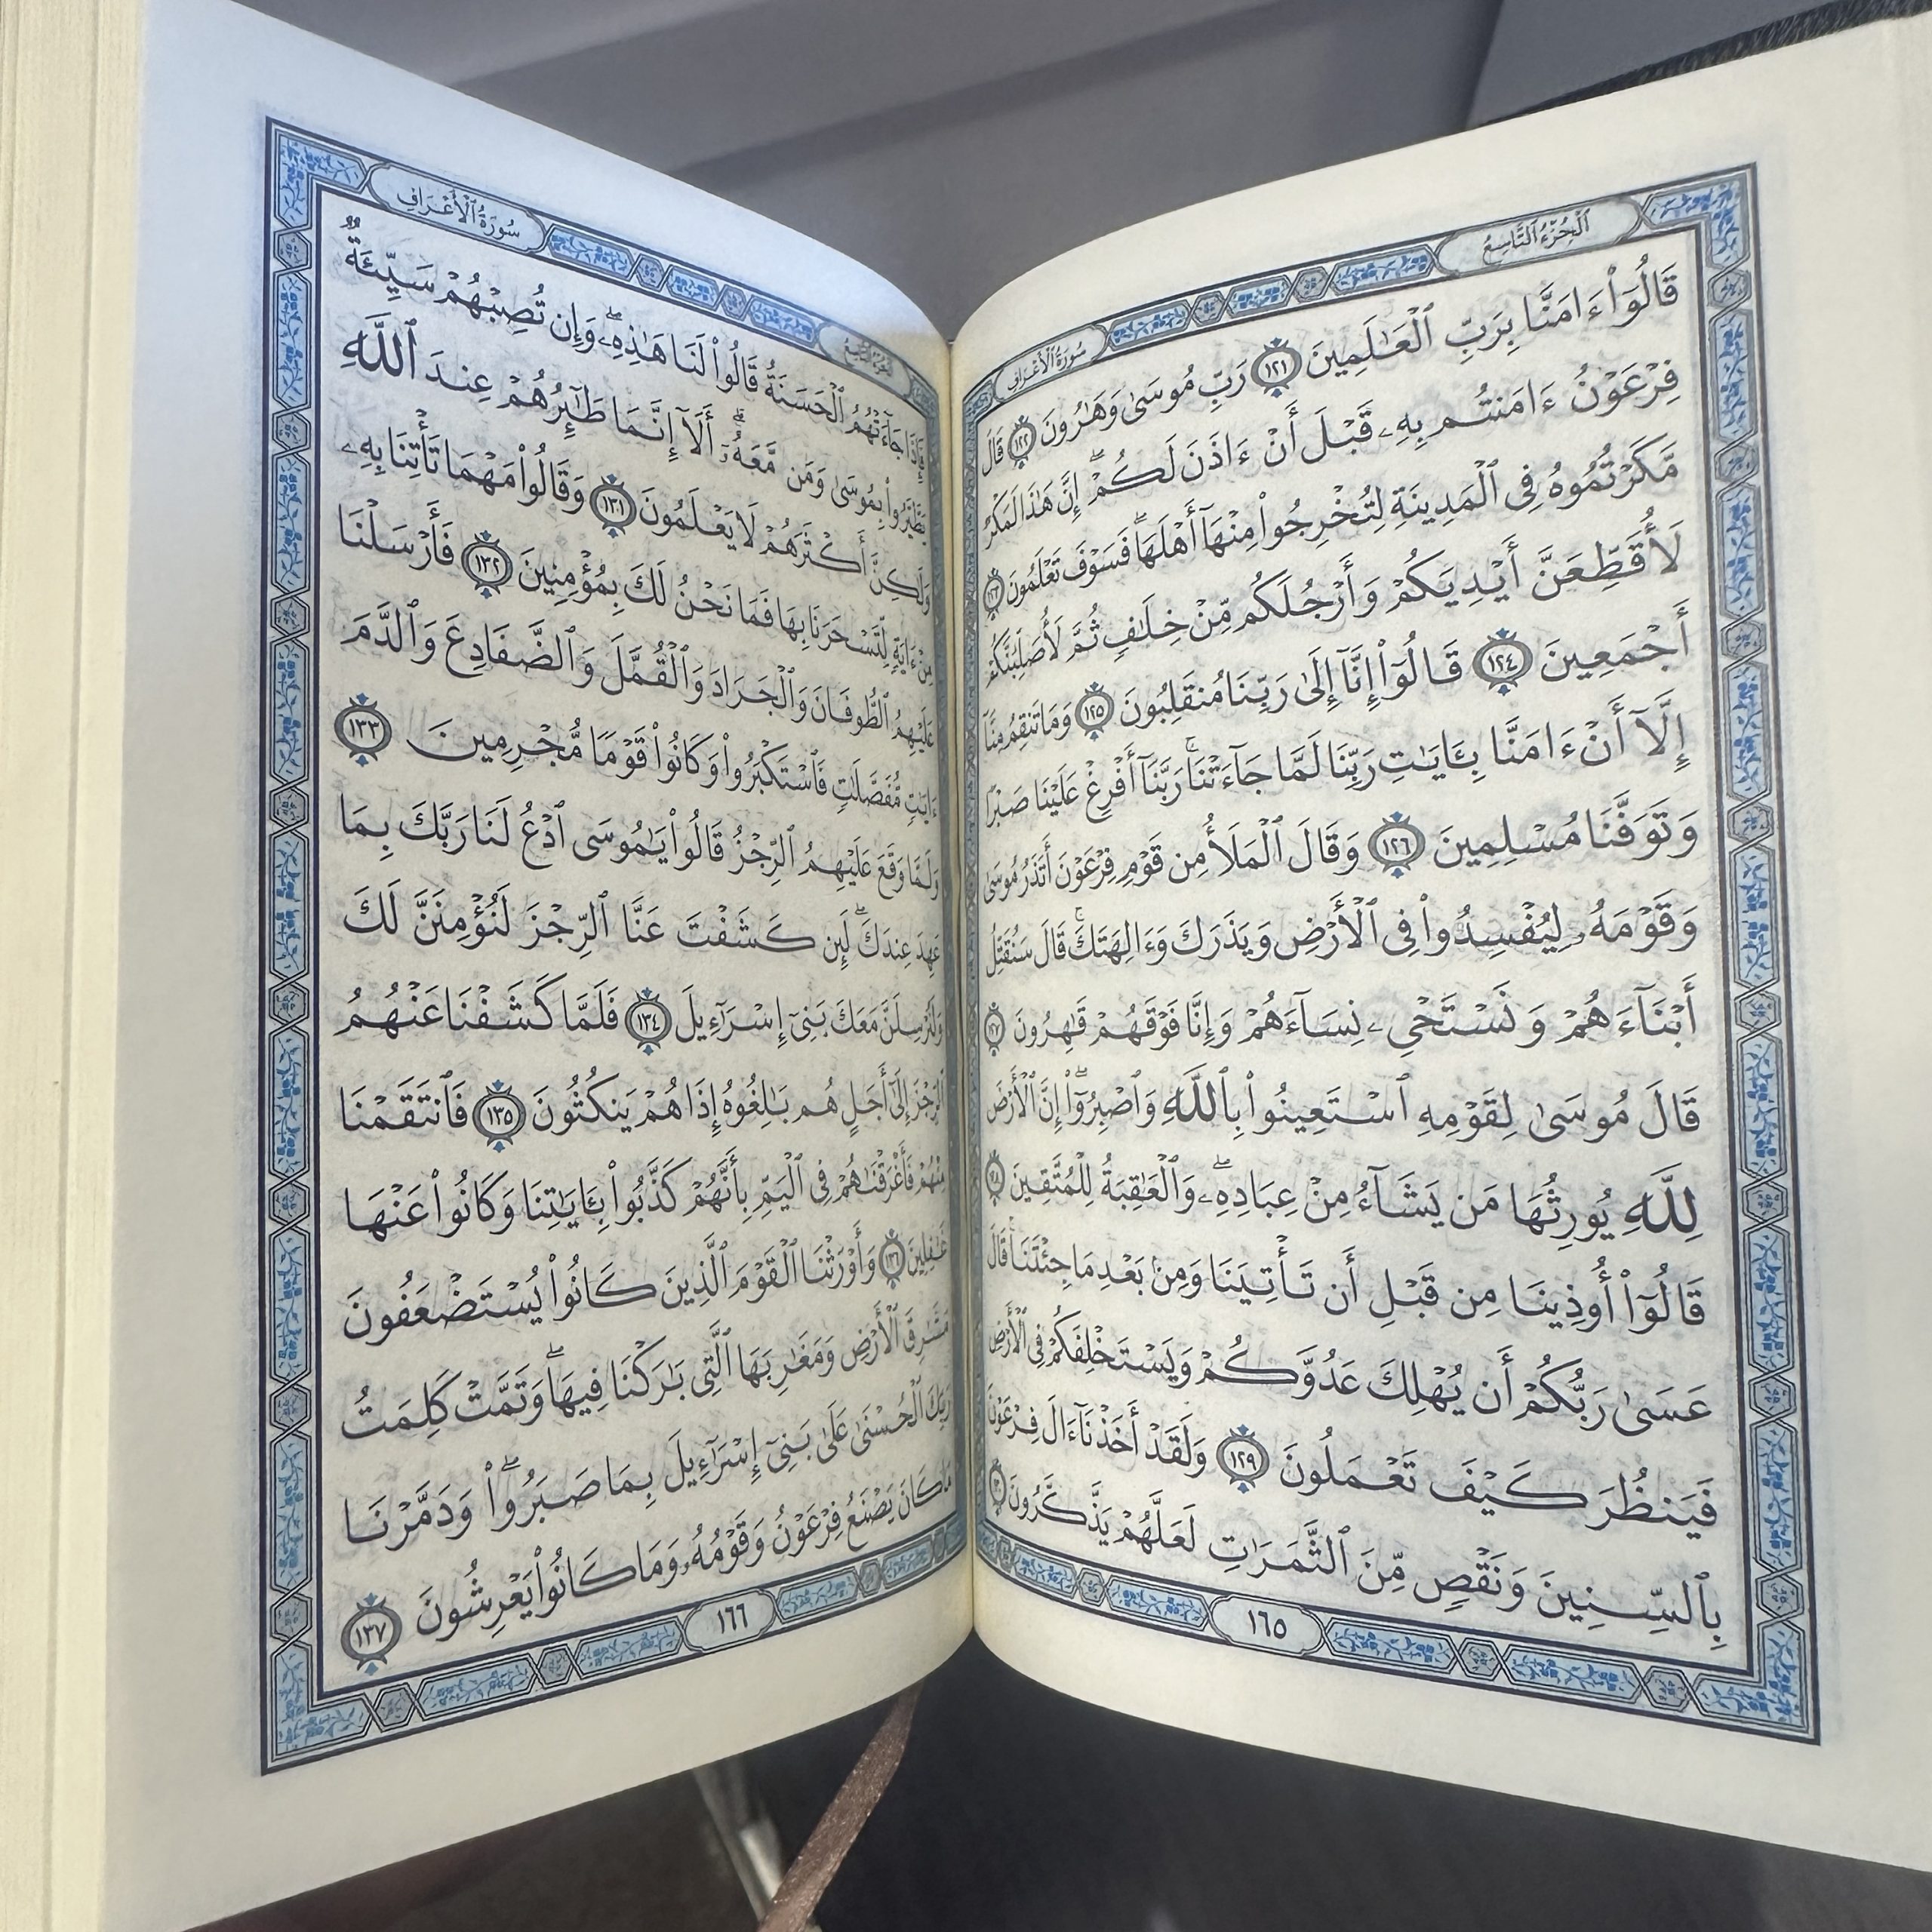 ٱلْجُزْءُ ٱلتَّاسِعُ
سُورَةُ ٱلْأَعْرَافِ
قَالُوٓا۟ ءَامَنَّا بِرَبِّ ٱلْعَٰلَمِينَ ١٢١ رَبِّ مُوسَىٰ وَهَٰرُونَ ١٢٢ قَالَ
فِرْعَوْنُ ءَامَنتُم بِهِۦ قَبْلَ أَنْ ءَاذَنَ لَكُمْ ۖ إِنَّ هَٰذَا لَمَكْرٌ
مَّكَرْتُمُوهُ فِى ٱلْمَدِينَةِ لِتُخْرِجُوا۟ مِنْهَآ أَهْلَهَا ۖ فَسَوْفَ تَعْلَمُونَ ١٢٣
لَأُقَطِّعَنَّ أَيْدِيَكُمْ وَأَرْجُلَكُم مِّنْ خِلَٰفٍ ثُمَّ لَأُصَلِّبَنَّكُمْ
أَجْمَعِينَ ١٢٤ قَالُوٓا۟ إِنَّآ إِلَىٰ رَبِّنَا مُنقَلِبُونَ ١٢٥ وَمَا تَنقِمُ مِنَّآ
إِلَّآ أَنْ ءَامَنَّا بِـَٔايَٰتِ رَبِّنَا لَمَّا جَآءَتْنَا ۚ رَبَّنَآ أَفْرِغْ عَلَيْنَا صَبْرًا
وَتَوَفَّنَا مُسْلِمِينَ ١٢٦ وَقَالَ ٱلْمَلَأُ مِن قَوْمِ فِرْعَوْنَ أَتَذَرُ مُوسَىٰ
وَقَوْمَهُۥ لِيُفْسِدُوا۟ فِى ٱلْأَرْضِ وَيَذَرَكَ وَءَالِهَتَكَ ۚ قَالَ سَنُقَتِّلُ
أَبْنَآءَهُمْ وَنَسْتَحْىِۦ نِسَآءَهُمْ وَإِنَّا فَوْقَهُمْ قَٰهِرُونَ ١٢٧
قَالَ مُوسَىٰ لِقَوْمِهِ ٱسْتَعِينُوا۟ بِٱللَّهِ وَٱصْبِرُوٓا۟ ۖ إِنَّ ٱلْأَرْضَ
لِلَّهِ يُورِثُهَا مَن يَشَآءُ مِنْ عِبَادِهِۦ ۖ وَٱلْعَٰقِبَةُ لِلْمُتَّقِينَ ١٢٨
قَالُوٓا۟ أُوذِينَا مِن قَبْلِ أَن تَأْتِيَنَا وَمِنۢ بَعْدِ مَا جِئْتَنَا ۚ قَالَ
عَسَىٰ رَبُّكُمْ أَن يُهْلِكَ عَدُوَّكُمْ وَيَسْتَخْلِفَكُمْ فِى ٱلْأَرْضِ
فَيَنظُرَ كَيْفَ تَعْمَلُونَ ١٢٩ وَلَقَدْ أَخَذْنَآ ءَالَ فِرْعَوْنَ
بِٱلسِّنِينَ وَنَقْصٍ مِّنَ ٱلثَّمَرَٰتِ لَعَلَّهُمْ يَذَّكَّرُونَ ١٣٠
١٦٥
ٱلْجُزْءُ ٱلتَّاسِعُ
سُورَةُ ٱلْأَعْرَافِ
فَإِذَا جَآءَتْهُمُ ٱلْحَسَنَةُ قَالُوا۟ لَنَا هَٰذِهِۦ ۖ وَإِن تُصِبْهُمْ سَيِّئَةٌ
يَطَّيَّرُوا۟ بِمُوسَىٰ وَمَن مَّعَهُۥٓ ۗ أَلَآ إِنَّمَا طَٰٓئِرُهُمْ عِندَ ٱللَّهِ
وَلَٰكِنَّ أَكْثَرَهُمْ لَا يَعْلَمُونَ ١٣١ وَقَالُوا۟ مَهْمَا تَأْتِنَا بِهِۦ
مِنْ ءَايَةٍ لِّتَسْحَرَنَا بِهَا فَمَا نَحْنُ لَكَ بِمُؤْمِنِينَ ١٣٢ فَأَرْسَلْنَا
عَلَيْهِمُ ٱلطُّوفَانَ وَٱلْجَرَادَ وَٱلْقُمَّلَ وَٱلضَّفَادِعَ وَٱلدَّمَ
ءَايَٰتٍ مُّفَصَّلَٰتٍ فَٱسْتَكْبَرُوا۟ وَكَانُوا۟ قَوْمًا مُّجْرِمِينَ ١٣٣
وَلَمَّا وَقَعَ عَلَيْهِمُ ٱلرِّجْزُ قَالُوا۟ يَٰمُوسَى ٱدْعُ لَنَا رَبَّكَ بِمَا
عَهِدَ عِندَكَ ۖ لَئِن كَشَفْتَ عَنَّا ٱلرِّجْزَ لَنُؤْمِنَنَّ لَكَ
وَلَنُرْسِلَنَّ مَعَكَ بَنِىٓ إِسْرَٰٓءِيلَ ١٣٤ فَلَمَّا كَشَفْنَا عَنْهُمُ
ٱلرِّجْزَ إِلَىٰٓ أَجَلٍ هُم بَٰلِغُوهُ إِذَا هُمْ يَنكُثُونَ ١٣٥ فَٱنتَقَمْنَا
مِنْهُمْ فَأَغْرَقْنَٰهُمْ فِى ٱلْيَمِّ بِأَنَّهُمْ كَذَّبُوا۟ بِـَٔايَٰتِنَا وَكَانُوا۟ عَنْهَا
غَٰفِلِينَ ١٣٦ وَأَوْرَثْنَا ٱلْقَوْمَ ٱلَّذِينَ كَانُوا۟ يُسْتَضْعَفُونَ
مَشَٰرِقَ ٱلْأَرْضِ وَمَغَٰرِبَهَا ٱلَّتِى بَٰرَكْنَا فِيهَا ۖ وَتَمَّتْ كَلِمَتُ
رَبِّكَ ٱلْحُسْنَىٰ عَلَىٰ بَنِىٓ إِسْرَٰٓءِيلَ بِمَا صَبَرُوا۟ ۖ وَدَمَّرْنَا
مَا كَانَ يَصْنَعُ فِرْعَوْنُ وَقَوْمُهُۥ وَمَا كَانُوا۟ يَعْرِشُونَ ١٣٧
١٦٦